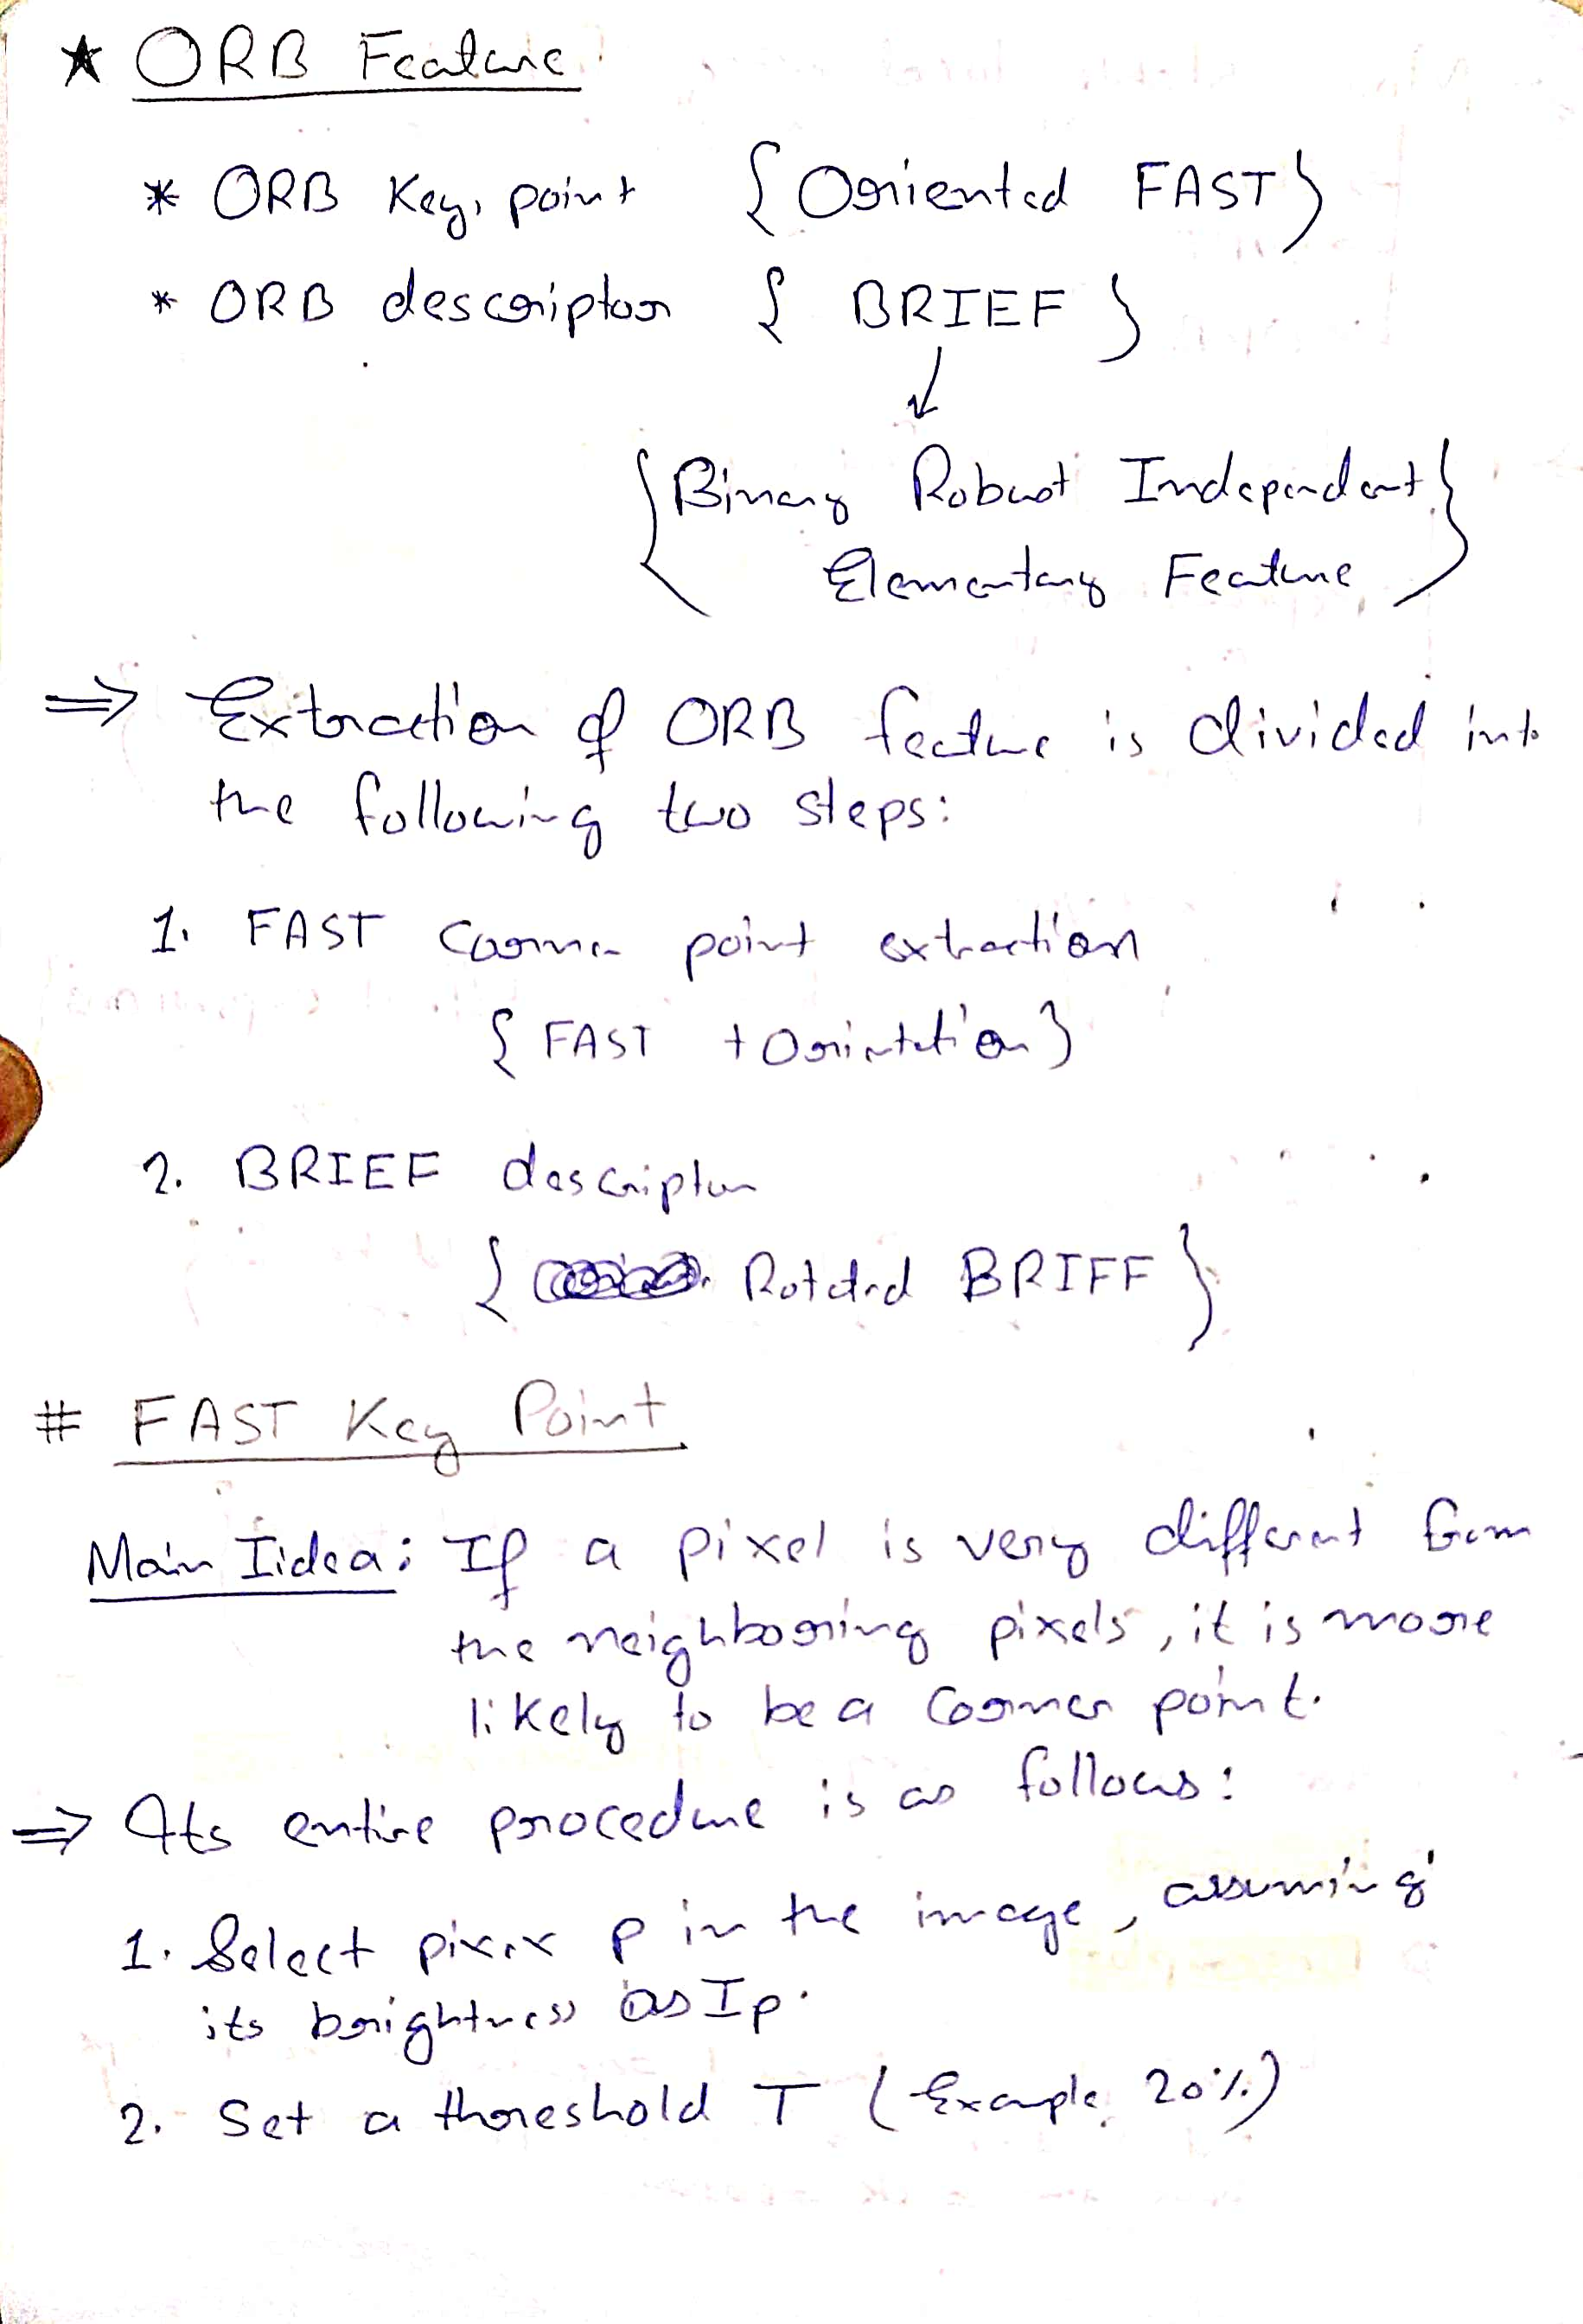 ★ ORB Feature
* ORB Key point {Oriented FAST}
* ORB descriptor { BRIEF }
↓
{Binary Robust Independent
Elementary Feature}
⇒ Extraction of ORB feature is divided into
the following two steps:
1. FAST corner point extraction
{ FAST + Orientation }
2. BRIEF descriptor
{ Rotated BRIEF }
# FAST Key Point
Main Iidea: If a pixel is very different from
the neighboring pixels, it is more
likely to be a corner point.
⇒ Its entire procedure is as follows:
1. Select pixex p in the image, assuming
its brightness as Ip.
2. Set a threshold T (Example, 20%)